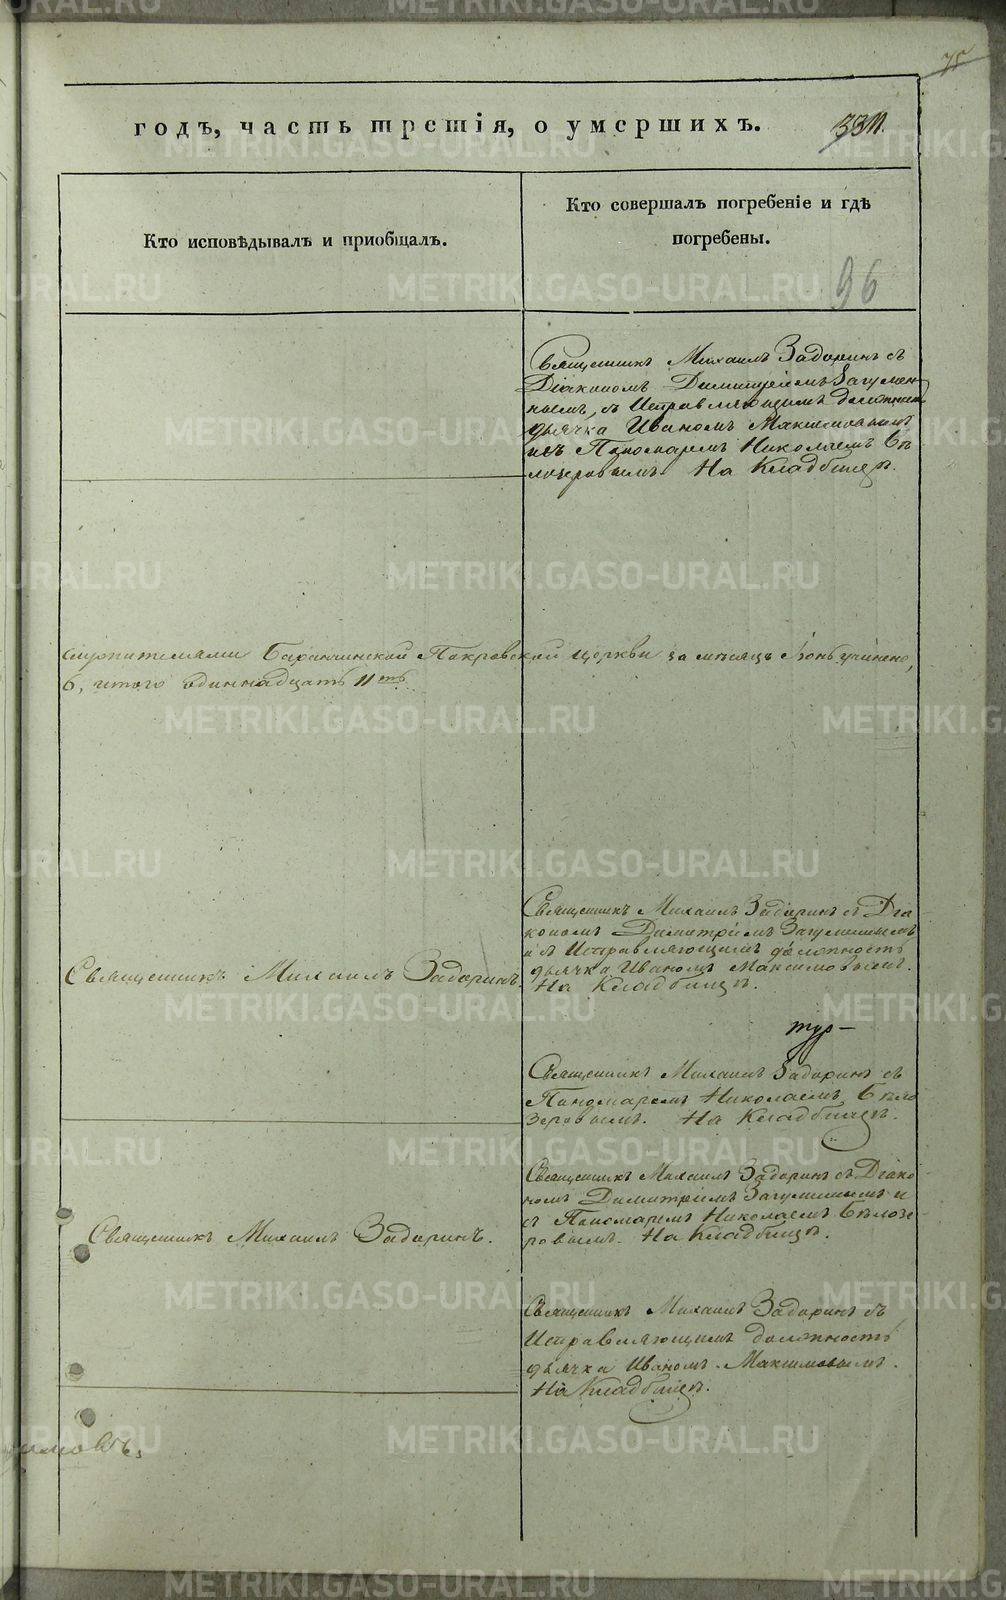 75
годъ, часть третія, о умершихъ.
331.
Кто исповѣдывалъ и пріобщалъ.
Кто совершалъ погребеніе и гдѣ
погребены.
96
Священникъ Михаилъ Задоринъ съ
Діакономъ Димитріемъ Загумен-
нымъ, съ Исправляющимъ должность
дьячка Иваномъ Максимовымъ
и съ Пономаремъ Николаемъ Бѣ
лозеровымъ. На Кладбищѣ.
служителями Баранчинской Покровской церкви за мѣсяцъ Іюнь учинено,
6, итого одиннадцать 11ть
Священникъ Михаилъ Задоринъ.
Священникъ Михаилъ Задоринъ съ Діа-
кономъ Димитріемъ Загуменнымъ
и съ Исправляющимъ должность
дьячка Иваномъ Максимовымъ.
На Кладбищѣ.
Священникъ Михаилъ Задоринъ съ
Пономаремъ Николаемъ Бѣло
зеровымъ. На Кладбищѣ.
Священникъ Михаилъ Задоринъ.
Священникъ Михаилъ Задоринъ съ Діако-
номъ Димитріемъ Загуменнымъ и
съ Пономаремъ Николаемъ Бѣлозе-
ровымъ. На Кладбищѣ.
Священникъ Михаилъ Задоринъ съ
Исправляющимъ должность
дьячка Иваномъ Максимовымъ.
На Кладбищѣ.
METRIKI.GASO-URAL.RU